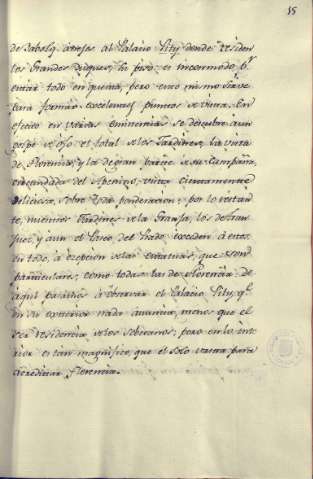 15
de Sabolq. anejos al Palacio Pity donde residen
los Grandes Duques; su piso es incomodo pr.
estar todo en quinta, pero esto mismo sirve
para formar excelentes puntos de vista. En
efecto en varias eminencias se descubre aun
golpe de ojo el total de los Jardines, la vista
de Florencia, y la de gran parte de su Campaña,
circundada del Apenino, vista ciertamente
deliciosa, sobre toda ponderacion: por lo restan
te, nuestros Jardines de la Granja, los de Aran
juez, y aun el sitio del Prado, exceden á estos
en todo, á excepcion de las estatuas, que son
particulares, como todas las de Florencia. De
aqui pasamos á observar el Palacio Pity, qe.
en su exterior nada anuncia, menos que el
ser residencia de los soberanos; pero en lo inte
rior es tan magnifico, que él solo basta para
acreditar Florencia.